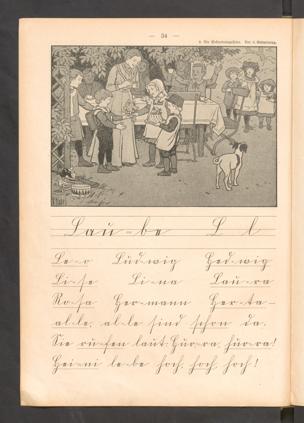 — 34 —
Lau-be L l
Le-o Lud-wig Hed-wig
Li-se Li-na Lau-ra
Ro-sa Her-mann Her-ta-
al-le, al-le sind schon da.
Sie ru-fen laut: Hur-ra, hur-ra!
Hei-ni le-be hoch, hoch, hoch!